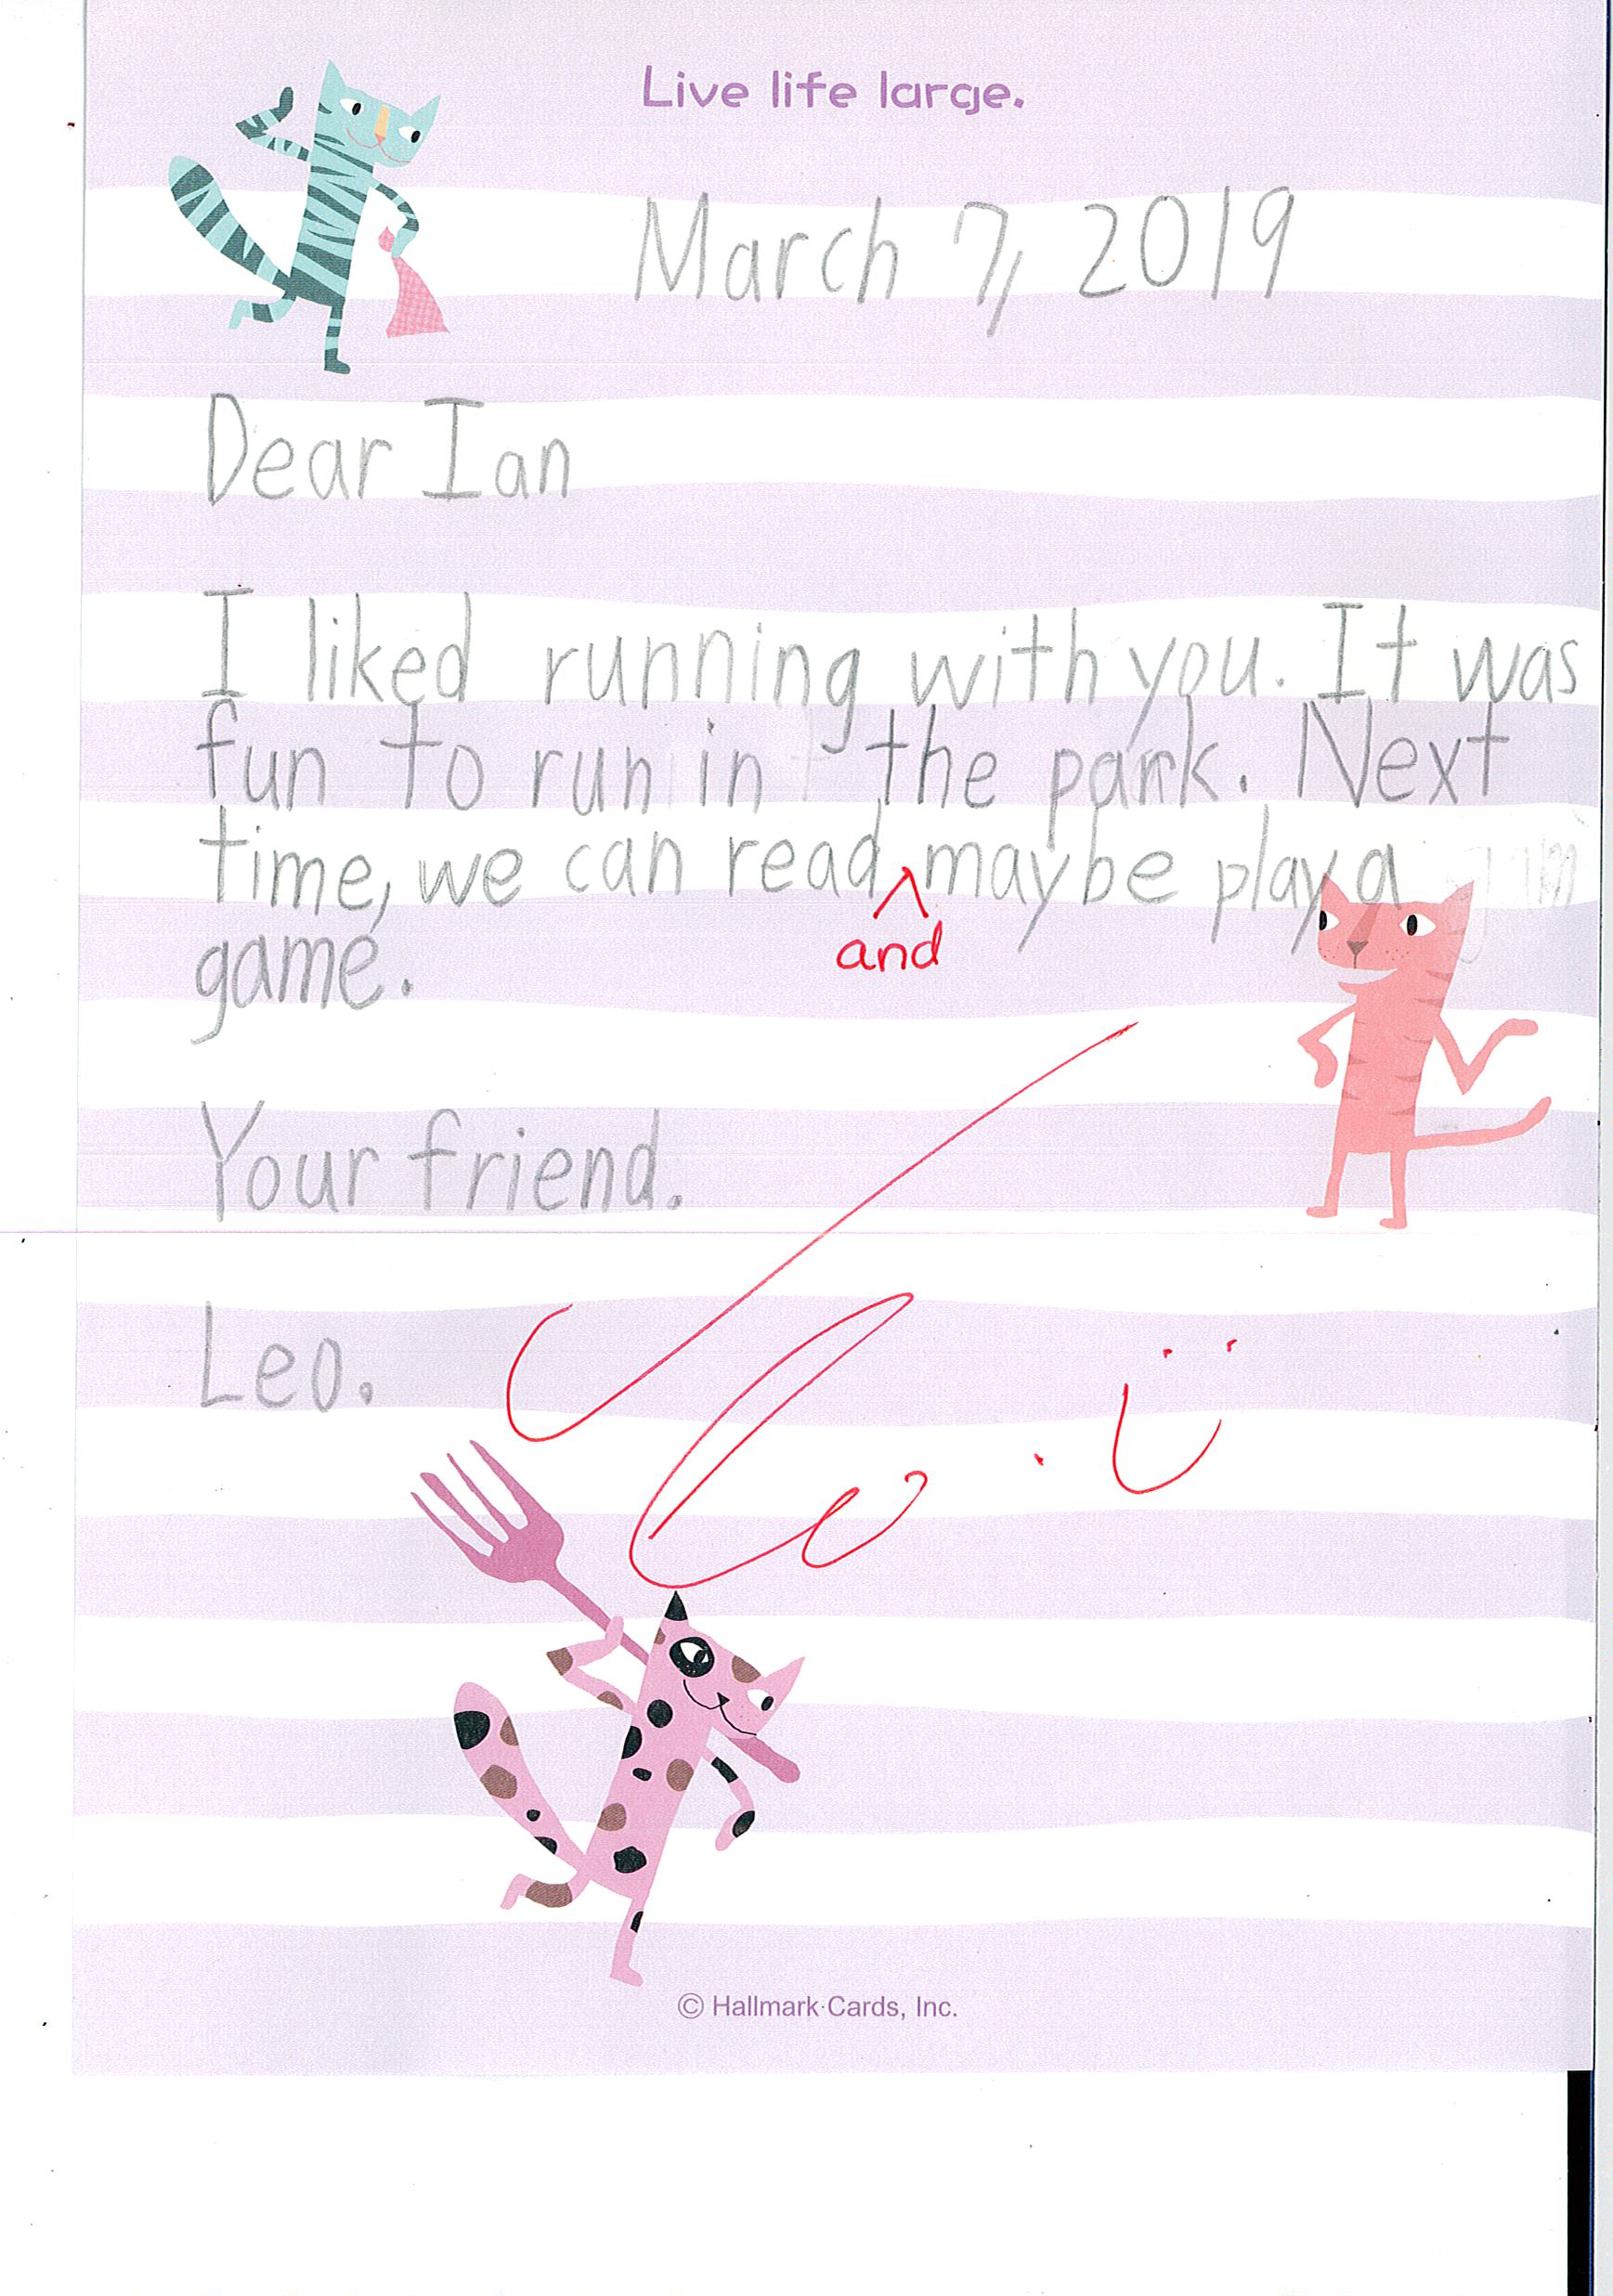 Live life large.
March 7, 2019
Dear Ian
I liked running with you. It was
fun to run in the park. Next
time, we can read maybe play a
and
game.
Your friend.
Leo.
© Hallmark Cards, Inc.